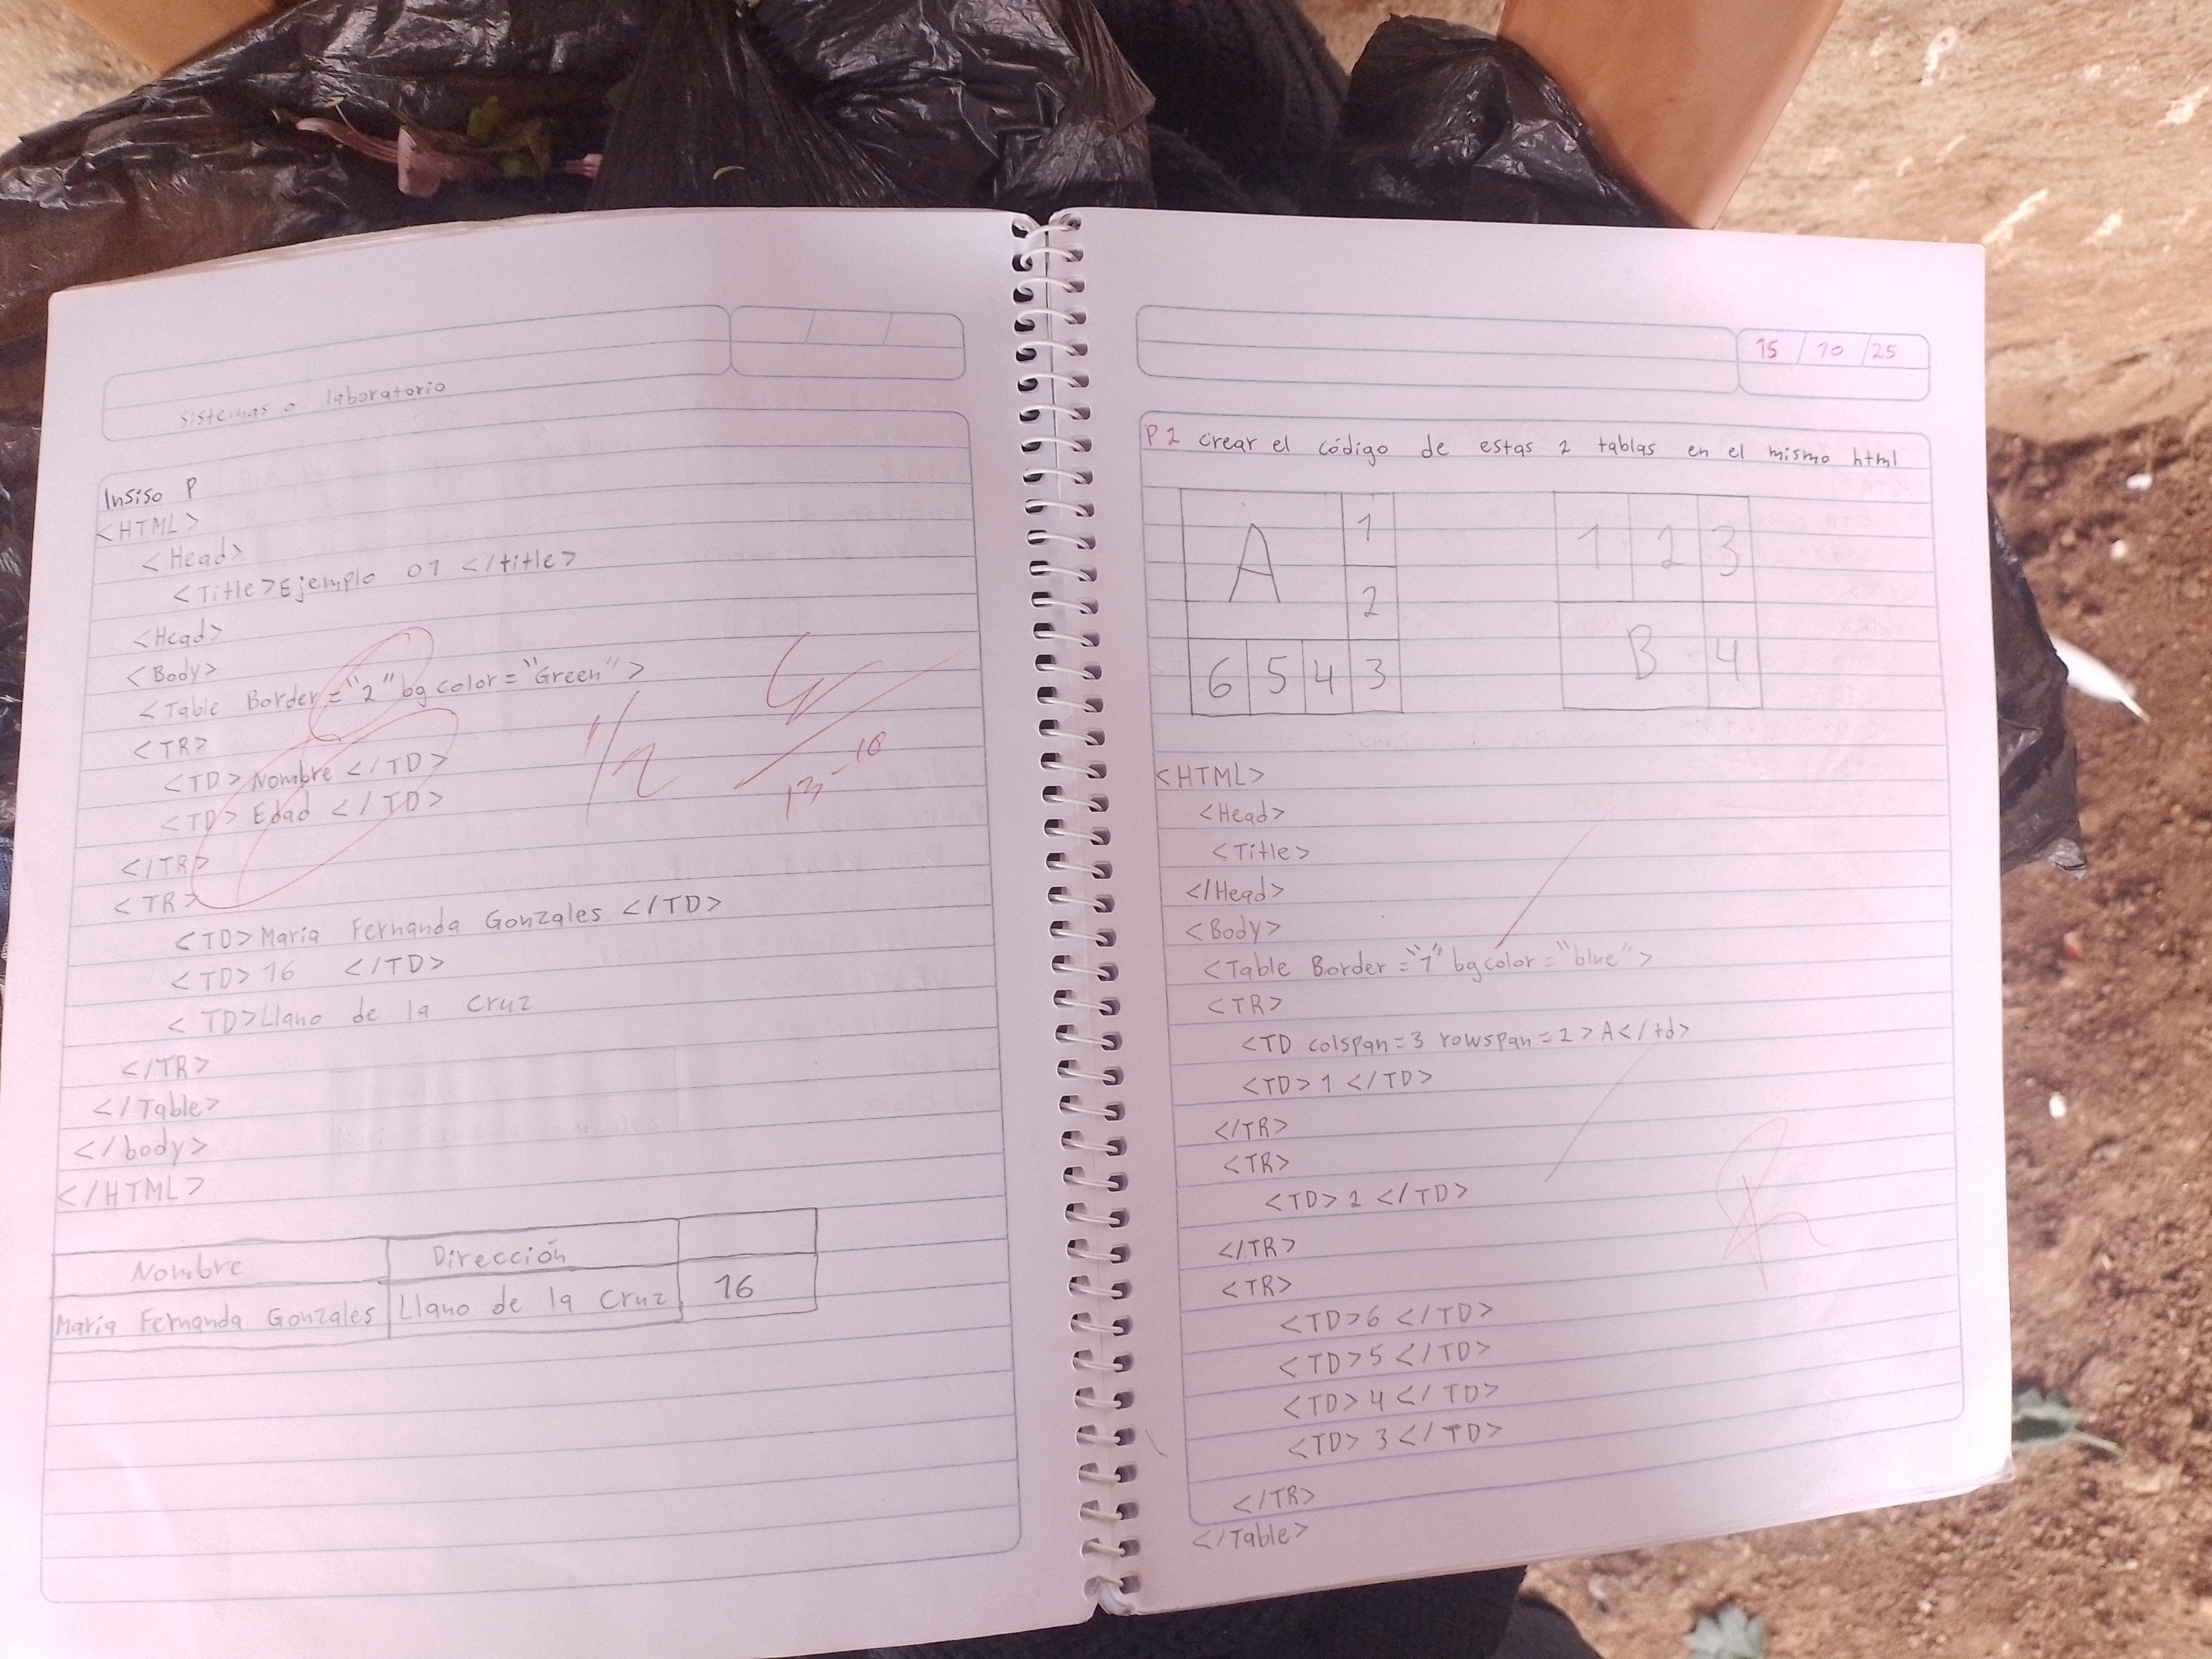 sistemas o laboratorio
Insiso P
<HTML>
<Head>
<Title>Ejemplo 01 </title>
<Head>
<Body>
<Table Border="2" bgcolor="Green">
<TR>
<TD> Nombre </TD>
<TD> Edad </TD>
</TR>
<TR>
<TD>Maria Fernanda Gonzales </TD>
<TD> 16 </TD>
<TD>Llano de la Cruz
</TR>
</Table>
</body>
</HTML>
1/2
13-10
Nombre Dirección
Maria Fernanda Gonzales Llano de la Cruz 16
15 / 10 / 25
P2 crear el código de estas 2 tablas en el mismo html
A 1
2
6 5 4 3
1 2 3
B 4
<HTML>
<Head>
<Title>
</Head>
<Body>
<Table Border="1" bgcolor="blue">
<TR>
<TD colspan=3 rowspan=2 > A</td>
<TD> 1 </TD>
</TR>
<TR>
<TD> 2 </TD>
</TR>
<TR>
<TD>6 </TD>
<TD>5 </TD>
<TD> 4 </TD>
<TD> 3 </TD>
</TR>
</Table>